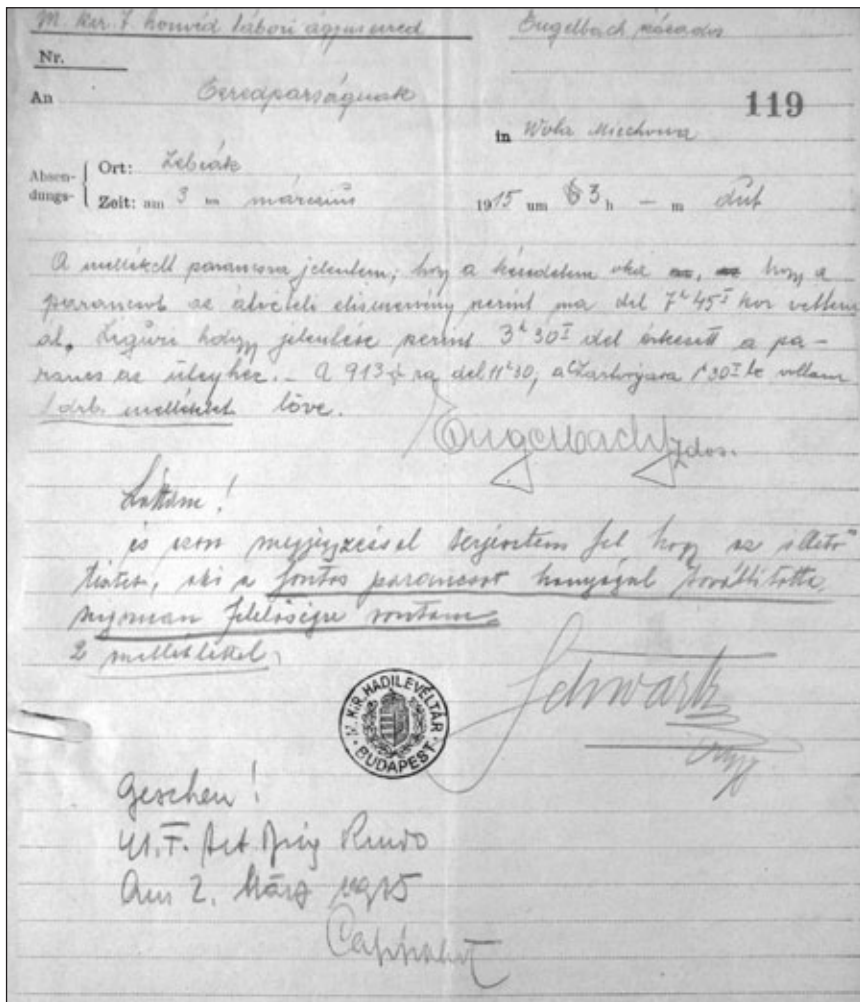 M. kir. 7. honvéd tábori ágyusezred
Engelbach százados
Nr.
An Ezredparságnak
119
in Wola Miechowa
Absen-dungs-
Ort: Zebrák
Zeit: am 3 ten március 1915 um 3 h — m dut
A mellékelt parancsra jelentem, hogy a késedelem oka hogy a
parancsot az átvételi elismervény szerint ma del 7h 45I kor vettem
át. Ligeti hdgy jelentése szerint 3h 30I del érkezett a pa-
rancs az üteghez. – A 913 ra del 11h30, a 1h30I le voltam
1 drb. melléklet lőve.
Engelbach szdos.
Láttam!
és azon megjegyzéssel terjesztem fel hogy az illető
tisztet, aki a fontos parancsot hanyagul továbbította
szigoruan felelőségre vontam.
2 melléklettel.
Schwartz
M. KIR. HADILEVÉLTÁR
BUDAPEST
Gesehen!
41. F. Art. Brig Kmdo
Am 2. März 1915